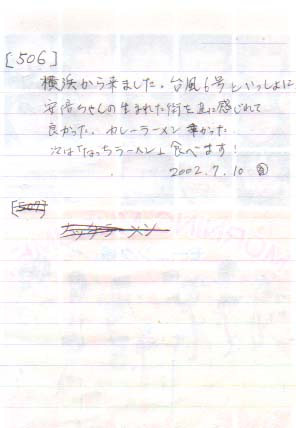 [506]
横浜から来ました。台風6号といっしょに
安倍ちゃんの生まれた街を直に感じれて
良かった。カレーラーメン辛かった
次は「なっちラーメン」食べます!
2002.7.10
[507]
ラーメン